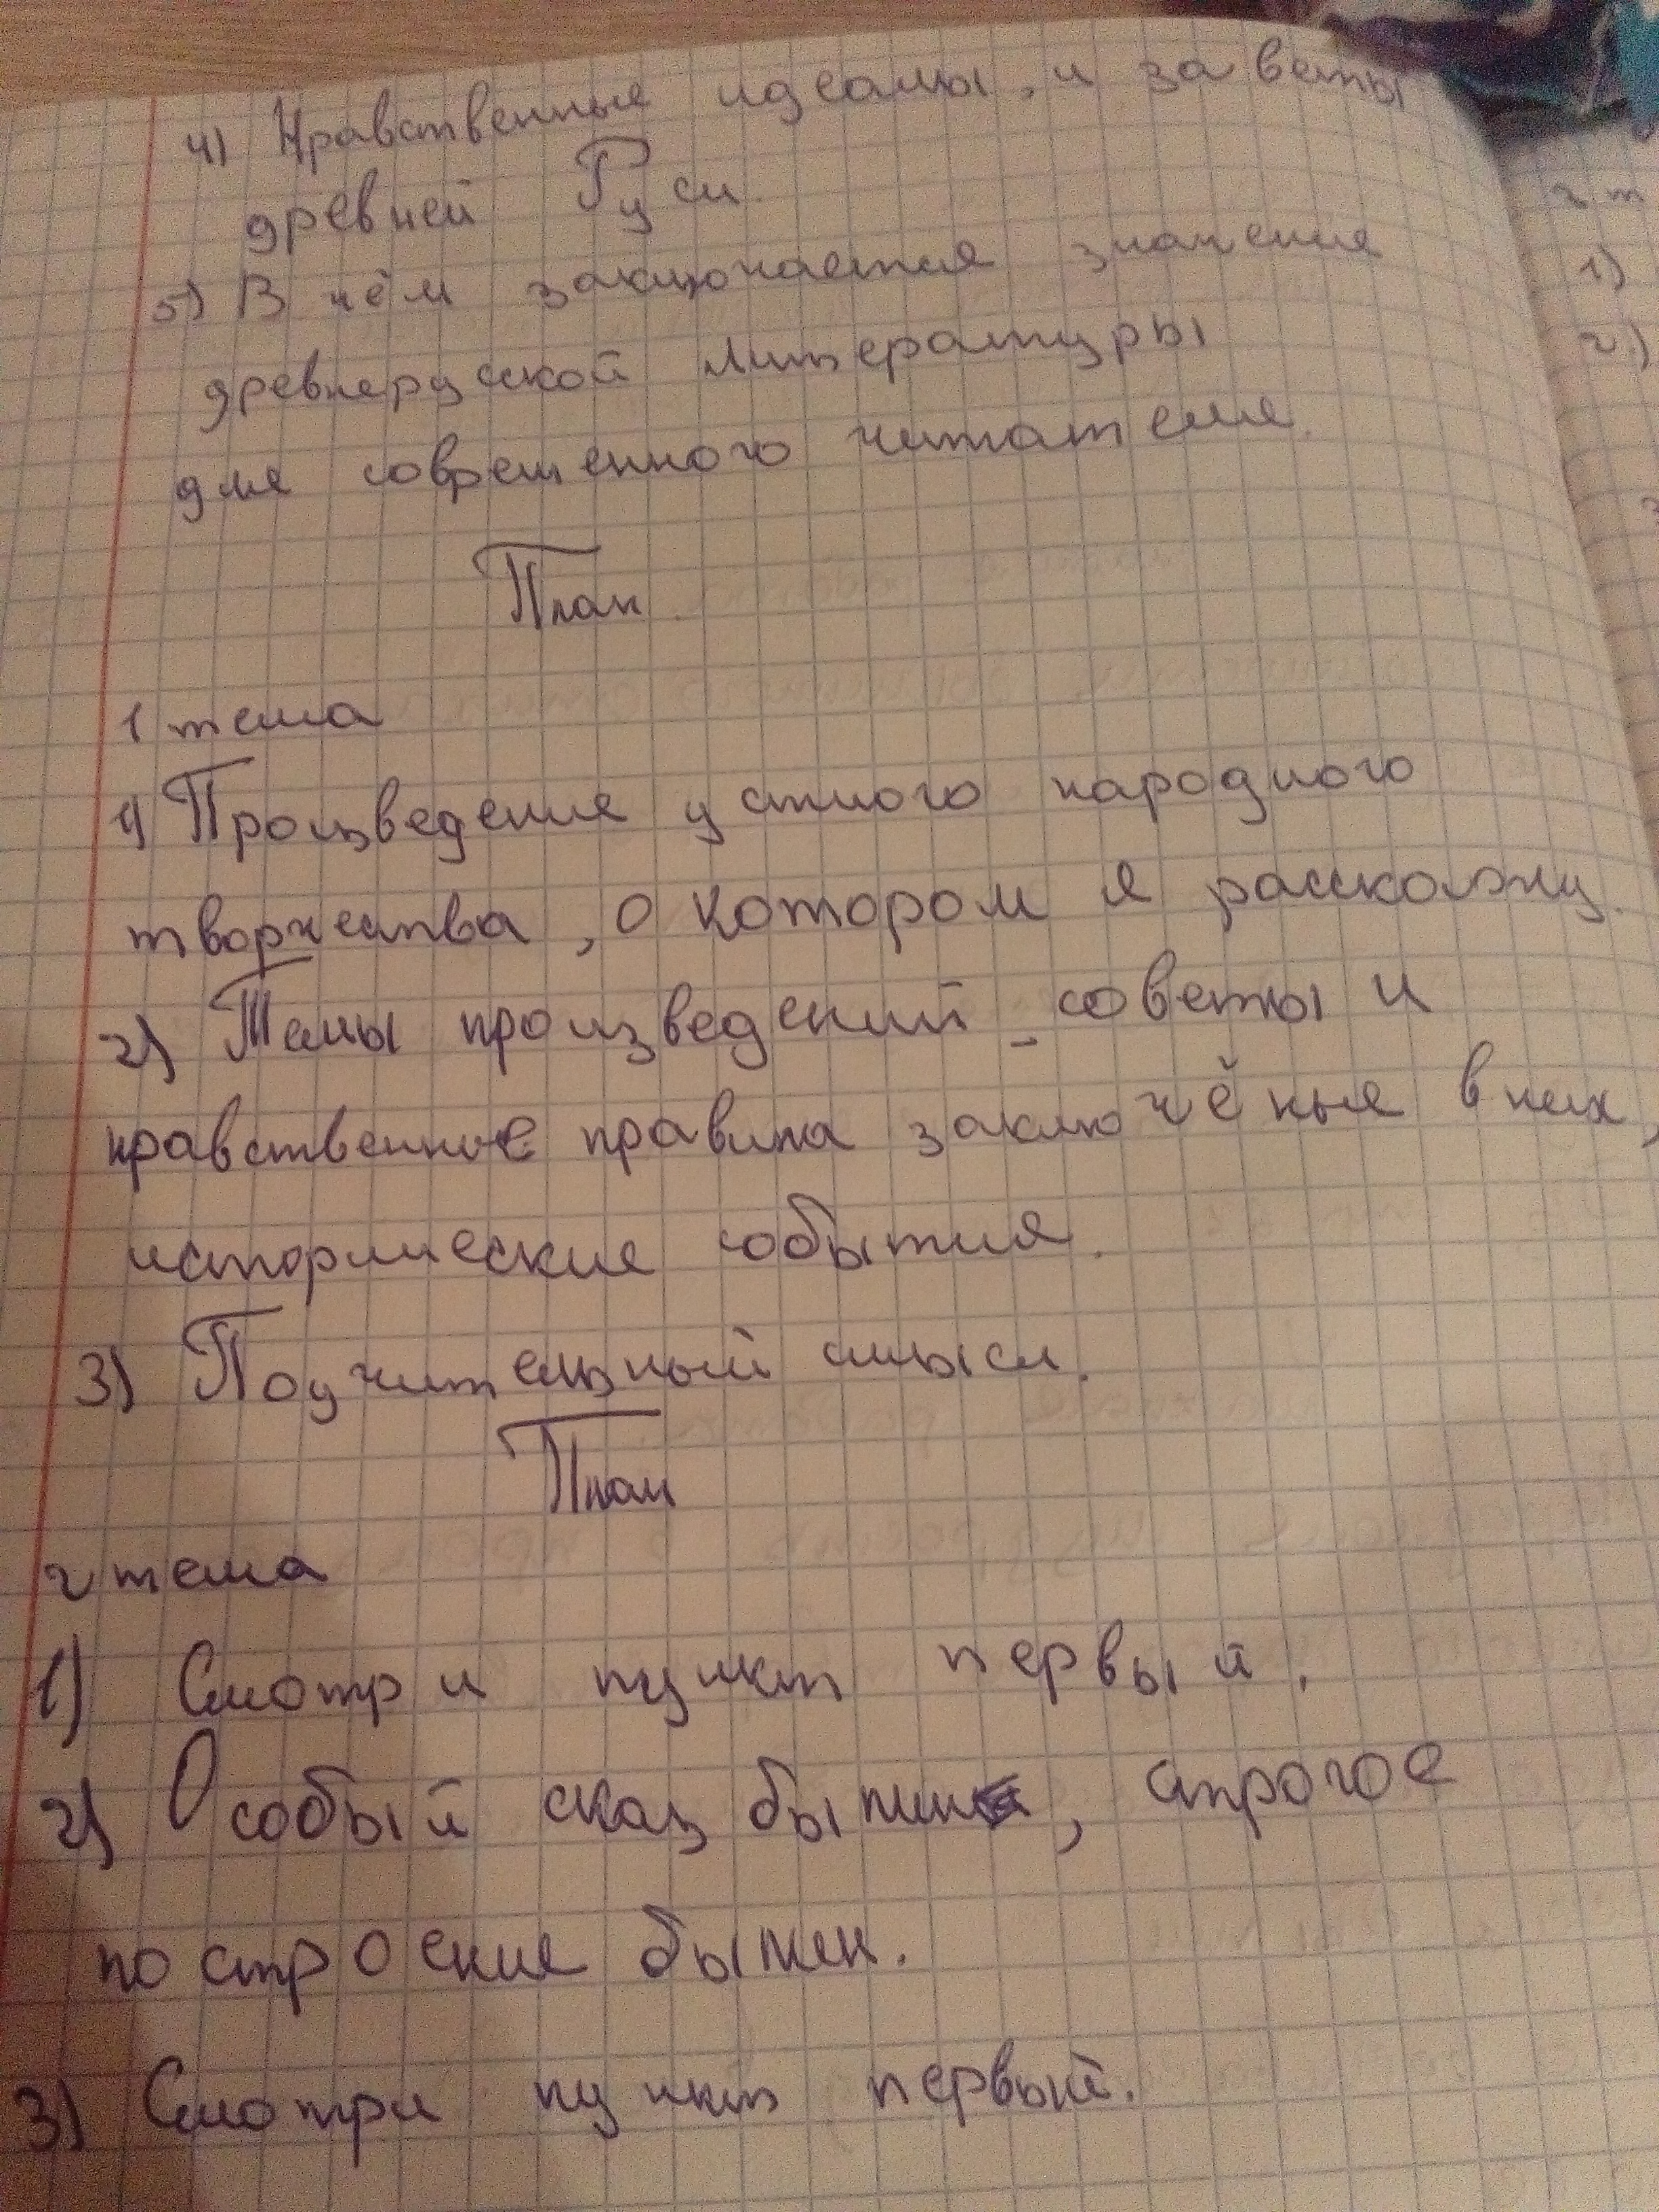 4) Нравственные идеалы, и заветы
древней Руси.
5) В чём заключается значение
древнерусской литературы
для современного читателя.
План.
1 тема
1) Произведение устного народного
творчества, о котором я расскажу.
2) Темы произведений - советы и
нравственные правила заключёные в них,
исторические события.
3) Поучительный смысл.
План
2 тема
1) Смотри пункт первый.
2) Особый сказ былин, строгое
построение былин.
3) Смотри пункт первый.
2 т
1)
2)